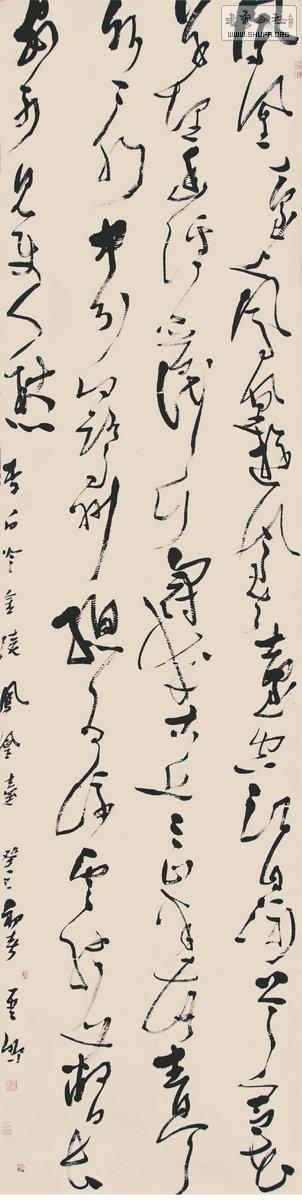 鳳凰臺上鳳凰遊鳳去臺空江自流吳宮花
草埋幽徑晉代衣冠成古丘三山半落青天
外二水中分白鷺洲總為浮雲能蔽日長
安不見使人愁
李白登金陵鳳凰臺 癸巳
WWW.SHUFA.ORG